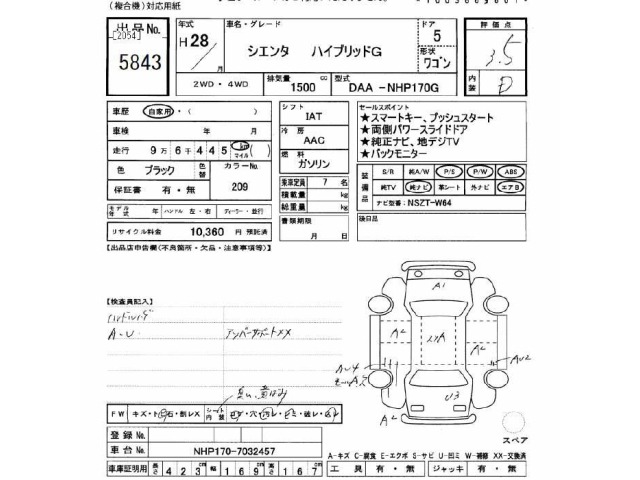 (複合機)対応用紙
出品No.
[2054]
5843
年式
H28/
月
車名・グレード
シエンタ ハイブリッドG
ドア
5
形状
ワゴン
評価点
3.5
内装
D
2WD・4WD
排気量
1500cc
型式
DAA -NHP170G
車歴 自家用・( )
車検 年 月
走行 9万6千445km マイル( )
色 ブラック 色替 カラーNo.
209
保証書 有・無
モデル年式 年 ハンドル 左・右 ディーラー・並行
リサイクル料金 10,360 円 預託済
シフト
IAT
冷房
AAC
燃料
ガソリン
乗車定員 7 名
積載量 kg
総重量 kg
書類期限
月 日
セールスポイント
★スマートキー、プッシュスタート
★両側パワースライドドア
★純正ナビ、地デジTV
★バックモニター
装備品
S/R 純A/W P/S P/W ABS
純TV 純ナビ 革シート 外ナビ エアB
ナビ型番:NSZT-W64
後日品
【出品店申告欄(不良箇所・欠品・注意事項等)】
【検査員記入】
A-U
A1
A2
A2
A2
U3
FW
シート
内装
登録No.
車台No. NHP170-7032457
車庫証明用 長さ 423cm 幅 169cm 高さ 167cm
スペア
A-キズ C-腐食 E-エクボ S-サビ U-凹ミ W-補修 XX-交換済
工具 有・無 ジャッキ 有・無